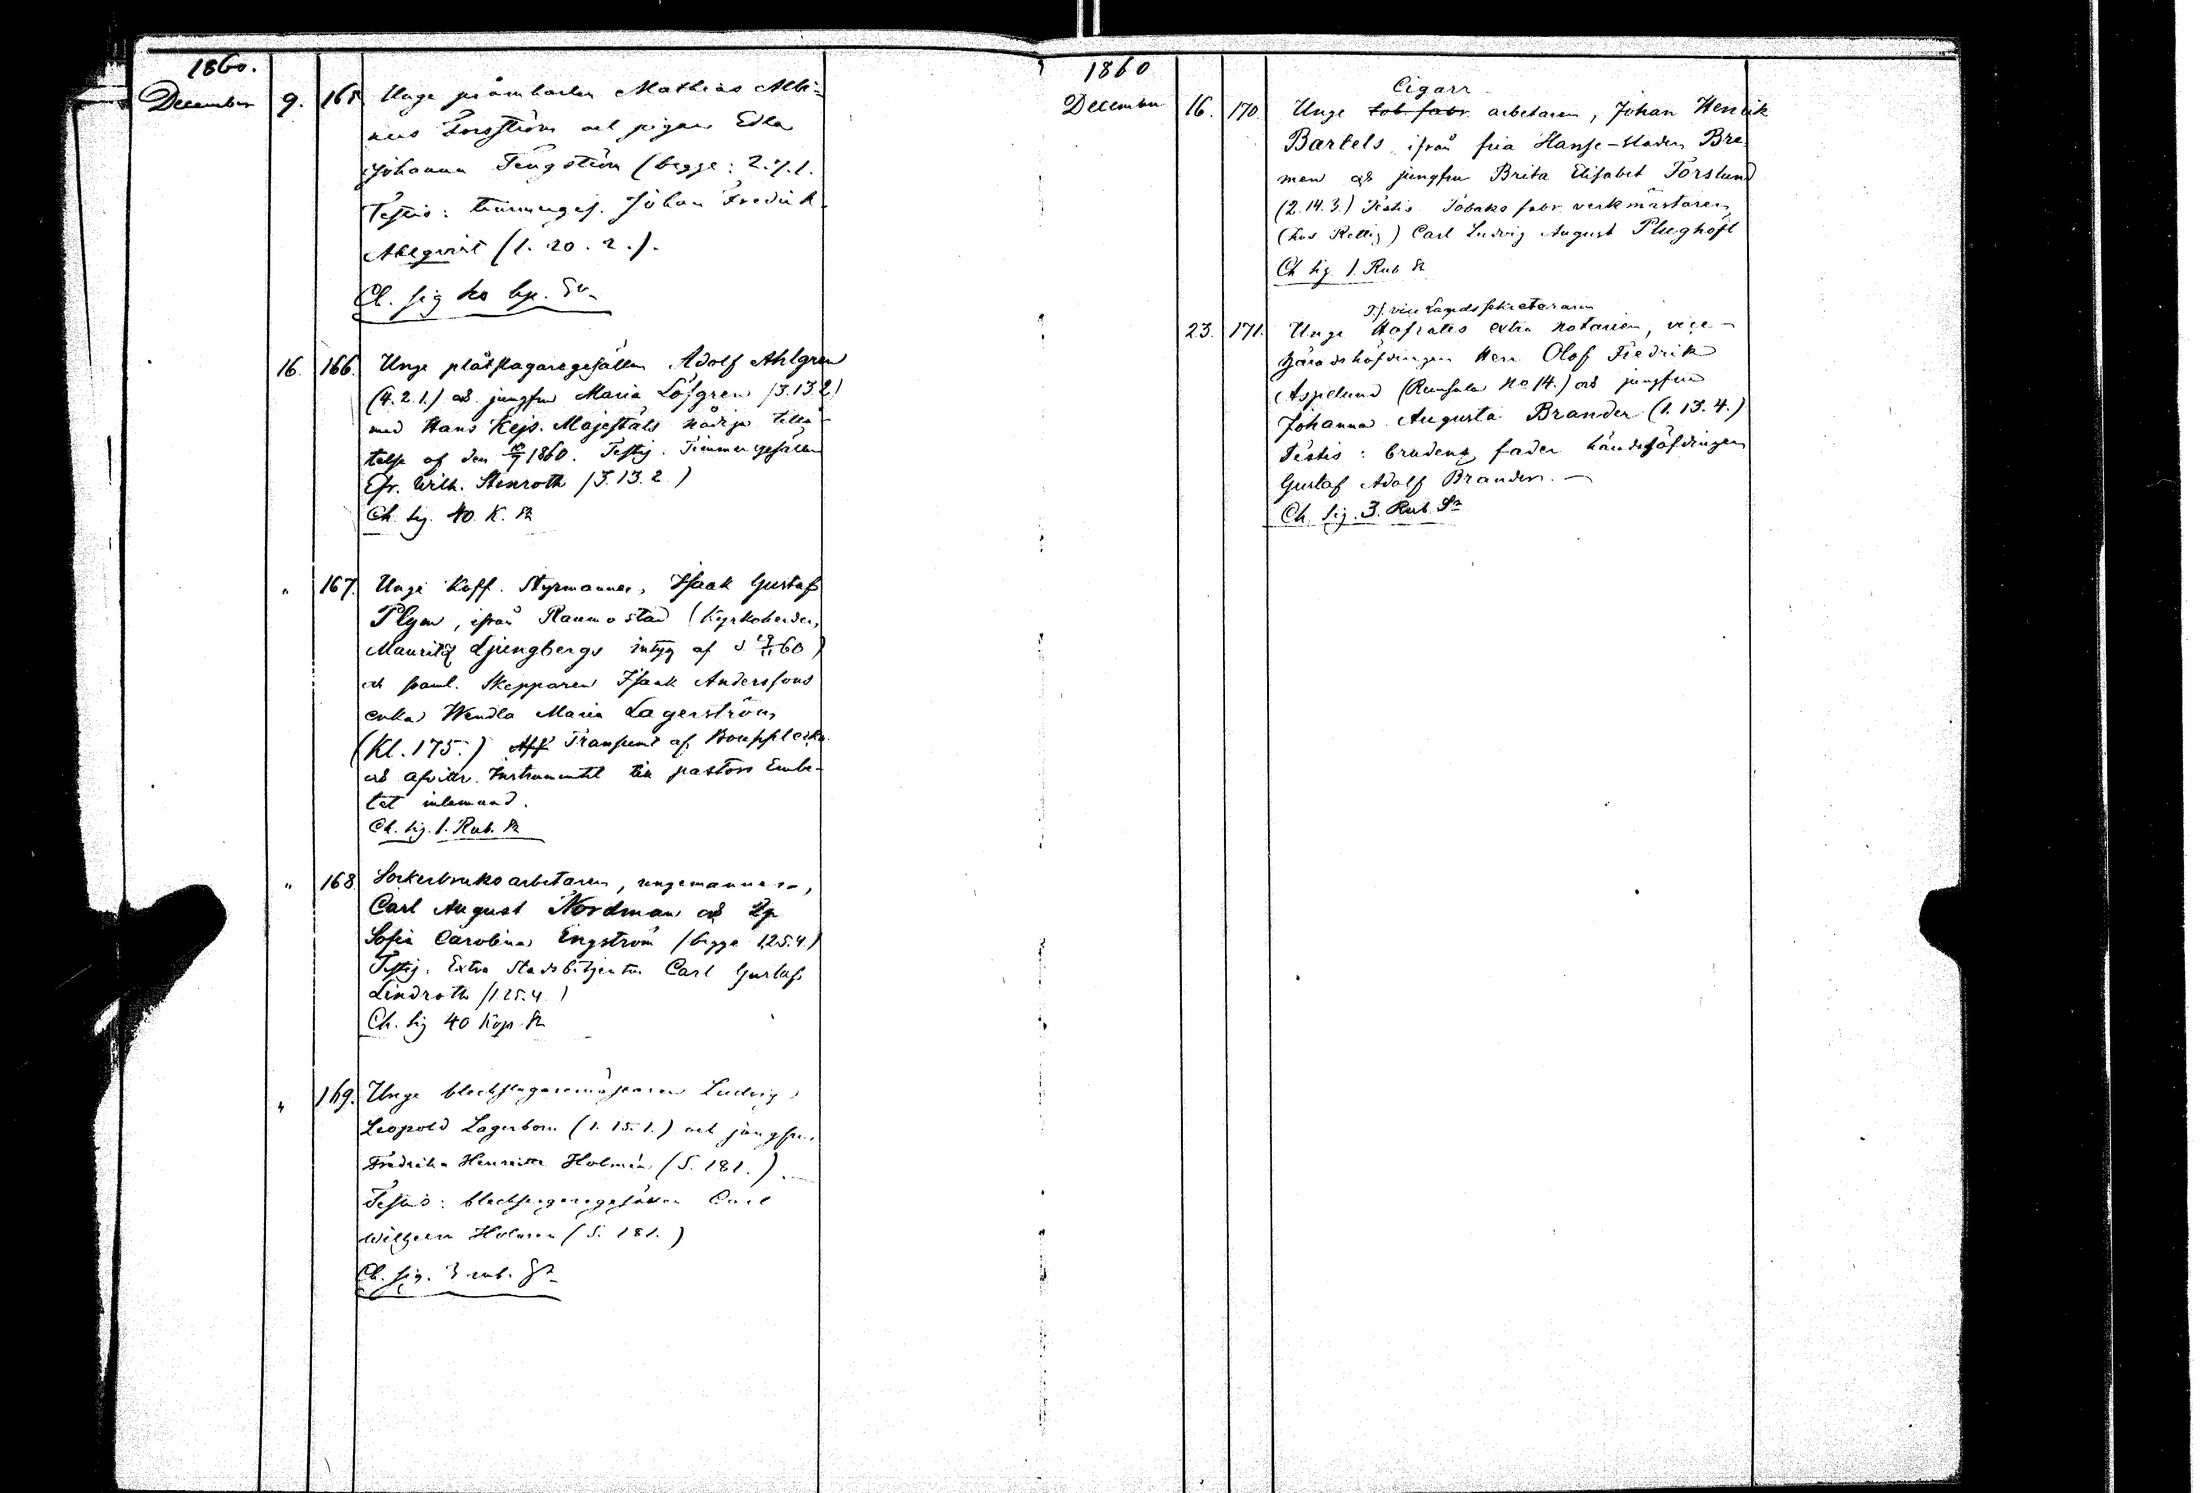 1860.
December 9. 165. Unge pråmkarlen Mathias Albi-
nus Forsström och pigan Edla
Johanna Tengström (begge: 2.7.1.
Testis: timmergs. Johan Fredrik
Ahlqvist (1. 20. 2.).
Ch. sig. 40 kp. Sr
16. 166. Unge plåtslagaregesällen Adolf Ahlgren
(4. 2. 1.) och jungfru Maria Löfgren (3. 13. 2)
med Hans Kejs. Majestäts nådiga tillå-
telse af den 1860. Testis. Timmergesällen
Efr. Wilh. Stenroth (3. 13. 2.)
Ch. sig. 40. K. Sr
" 167. Unge Koff. Styrmannen, Isaak Gustaf
Plym, ifrån Raumo stad (Kyrkoherden,
Mauritz Ljungbergs intyg af d 60)
och framl. Skepparen Isaak Anderssons
enka Wendla Maria Lagerström
(Kl. 175.) Transumt af Bouppteckn.
och afvittr. Instrumentet till pastors Embe-
tet inlemnad.
Ch. sig. 1. Rub. Sr
" 168. Sockerbruksarbetaren, ungemannen,
Carl August Nordman och Pig.
Sofia Carolina Engström (begge 1.25.4.)
Testis. Extra Stadsbetjenten Carl Gustaf
Lindroth (1.25.4.)
Ch. sig 40 Kop. Sr
" 169. Unge bleckslagaremästaren Ludvig
Leopold Lagerbom (1. 15. 1.) och jungfru
Fredrika Henriette Holmén (S. 181.)
Testis: bleckslagaregesällen Carl
Wilhelm Holmén (S. 181.)
Ch. sig. 3 rub. Sr
1860
Cigarr
December 16. 170. Unge tob. fabr. arbetaren, Johan Henrik
Bartels, ifrån fria Hanse-staden Bre-
men och jungfru Brita Elisabet Forslund
(2. 14. 3.) Testis Tobaks fabr. verkmästaren,
(hos Rettig) Carl Ludvig August Plughöft
Ch. sig. 1. Rub Sr
T.f. vice Landssekreteraren
23. 171. Unge Hofrätts extra notarien, vice-
häradshöfdingen Herr Olof Fredrik
Aspelund (Runsala No 14.) och jungfru
Johanna Augusta Brander (1. 13. 4.)
Testis: brudens fader häradshöfdingen
Gustaf Adolf Brander.
Ch. sig. 3. Rub. Sr